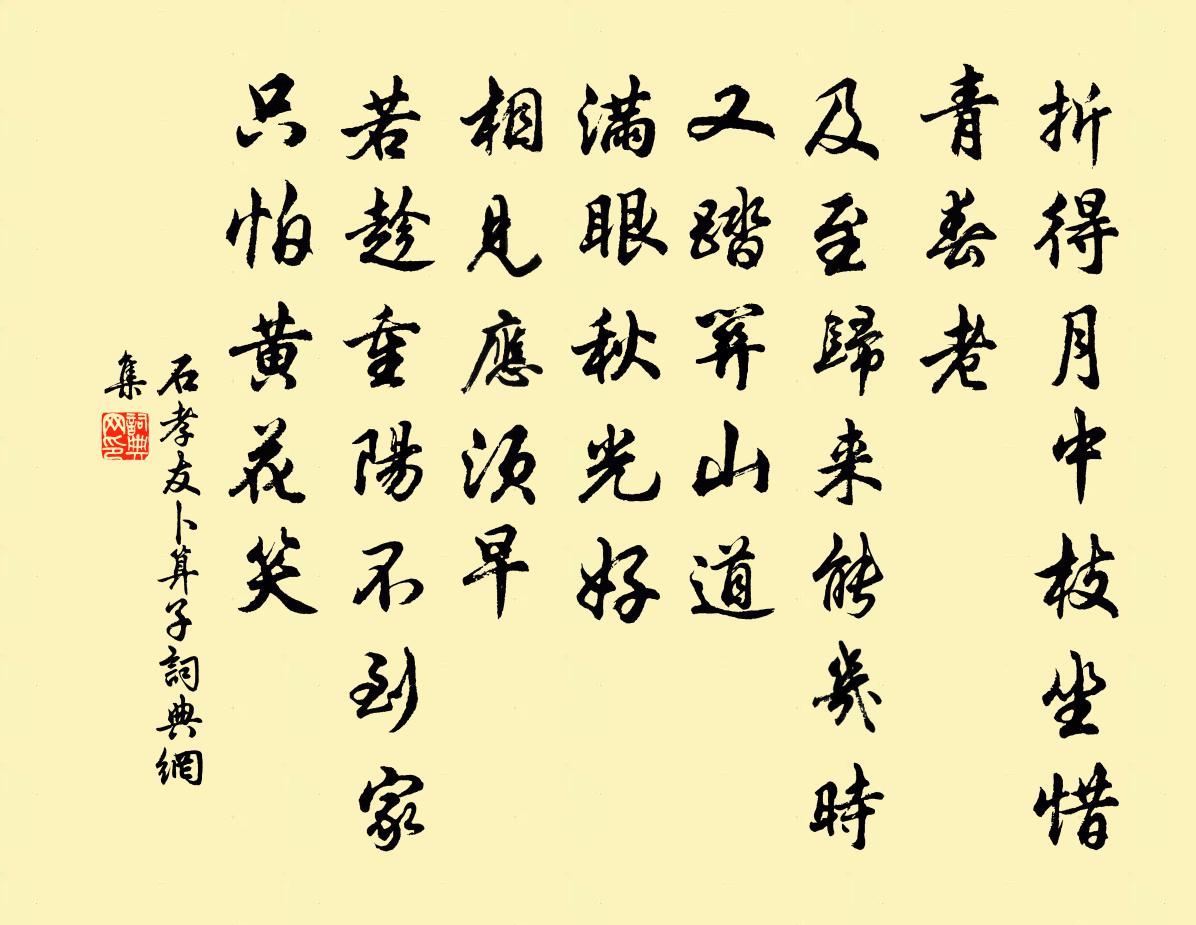 折得月中枝坐惜
青春老
及至歸来能幾時
又踏關山道
滿眼秋光好
相見應須早
若趁重陽不到家
只怕黃花笑
石孝友卜算子詞典網
集
詞典
网印